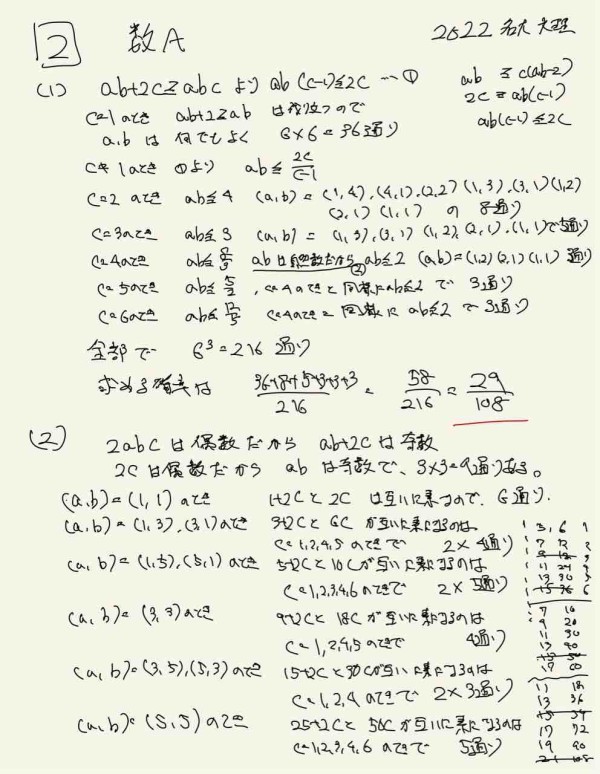 2 数A 2022 名大 文理
(1) ab+2c≧abc より ab(c-1)≦2c …①
ab ≧ c(ab-2)
2c ≧ ab(c-1)
ab(c-1)≦2c
c=1のとき ab+2≧ab は成立つので
a,b は 何でもよく 6×6=36通り
c≠1のとき ①より ab≦2c/(c-1)
c=2 のとき ab≦4 (a,b)=(1,4),(4,1),(2,2)(1,3),(3,1)(1,2)
(2,1)(1,1) の 8通り
c=3のとき ab≦3 (a,b)=(1,3),(3,1)(1,2),(2,1),(1,1)で5通り
c=4のとき ab≦8/3 abは自然数だから ab≦2 (a,b)=(1,2)(2,1)(1,1) 3通り
c=5のとき ab≦5/2, c=4のときと同様にab≦2 で 3通り
c=6のとき ab≦12/5 c=4のときと同様に ab≦2 で 3通り
全部で 6³=216通り
求める確率は (36+8+5+3+3+3)/216 = 58/216 = 29/108
(2) 2abcは偶数だから ab+2cは奇数
2cは偶数だから abは奇数で、3×3=9通りある。
(a,b)=(1,1)のとき 1+2cと2cは互いに素なので、6通り.
(a,b)=(1,3),(3,1)のとき 3+2cと6cが互いに素になるのは、
c=1,2,4,5のときで 2×4通り
(a,b)=(1,5),(5,1)のとき 5+2cと10cが互いに素になるのは
c=1,2,3,4,6のときで 2×5通り
(a,b)=(3,3)のとき 9+2cと18cが互いに素になるのは
c=1,2,4,5のときで 4通り
(a,b)=(3,5),(5,3)のとき 15+2cと30cが互いに素になるのは
c=1,2,4のときで 2×3通り
(a,b)=(5,5)のとき 25+2cと50cが互いに素になるのは
c=1,2,3,4,6のときで 5通り
7 10
9 20
11 30
13 40
15 50
17 60
11 18
13 36
15 54
17 72
19 90
21 108